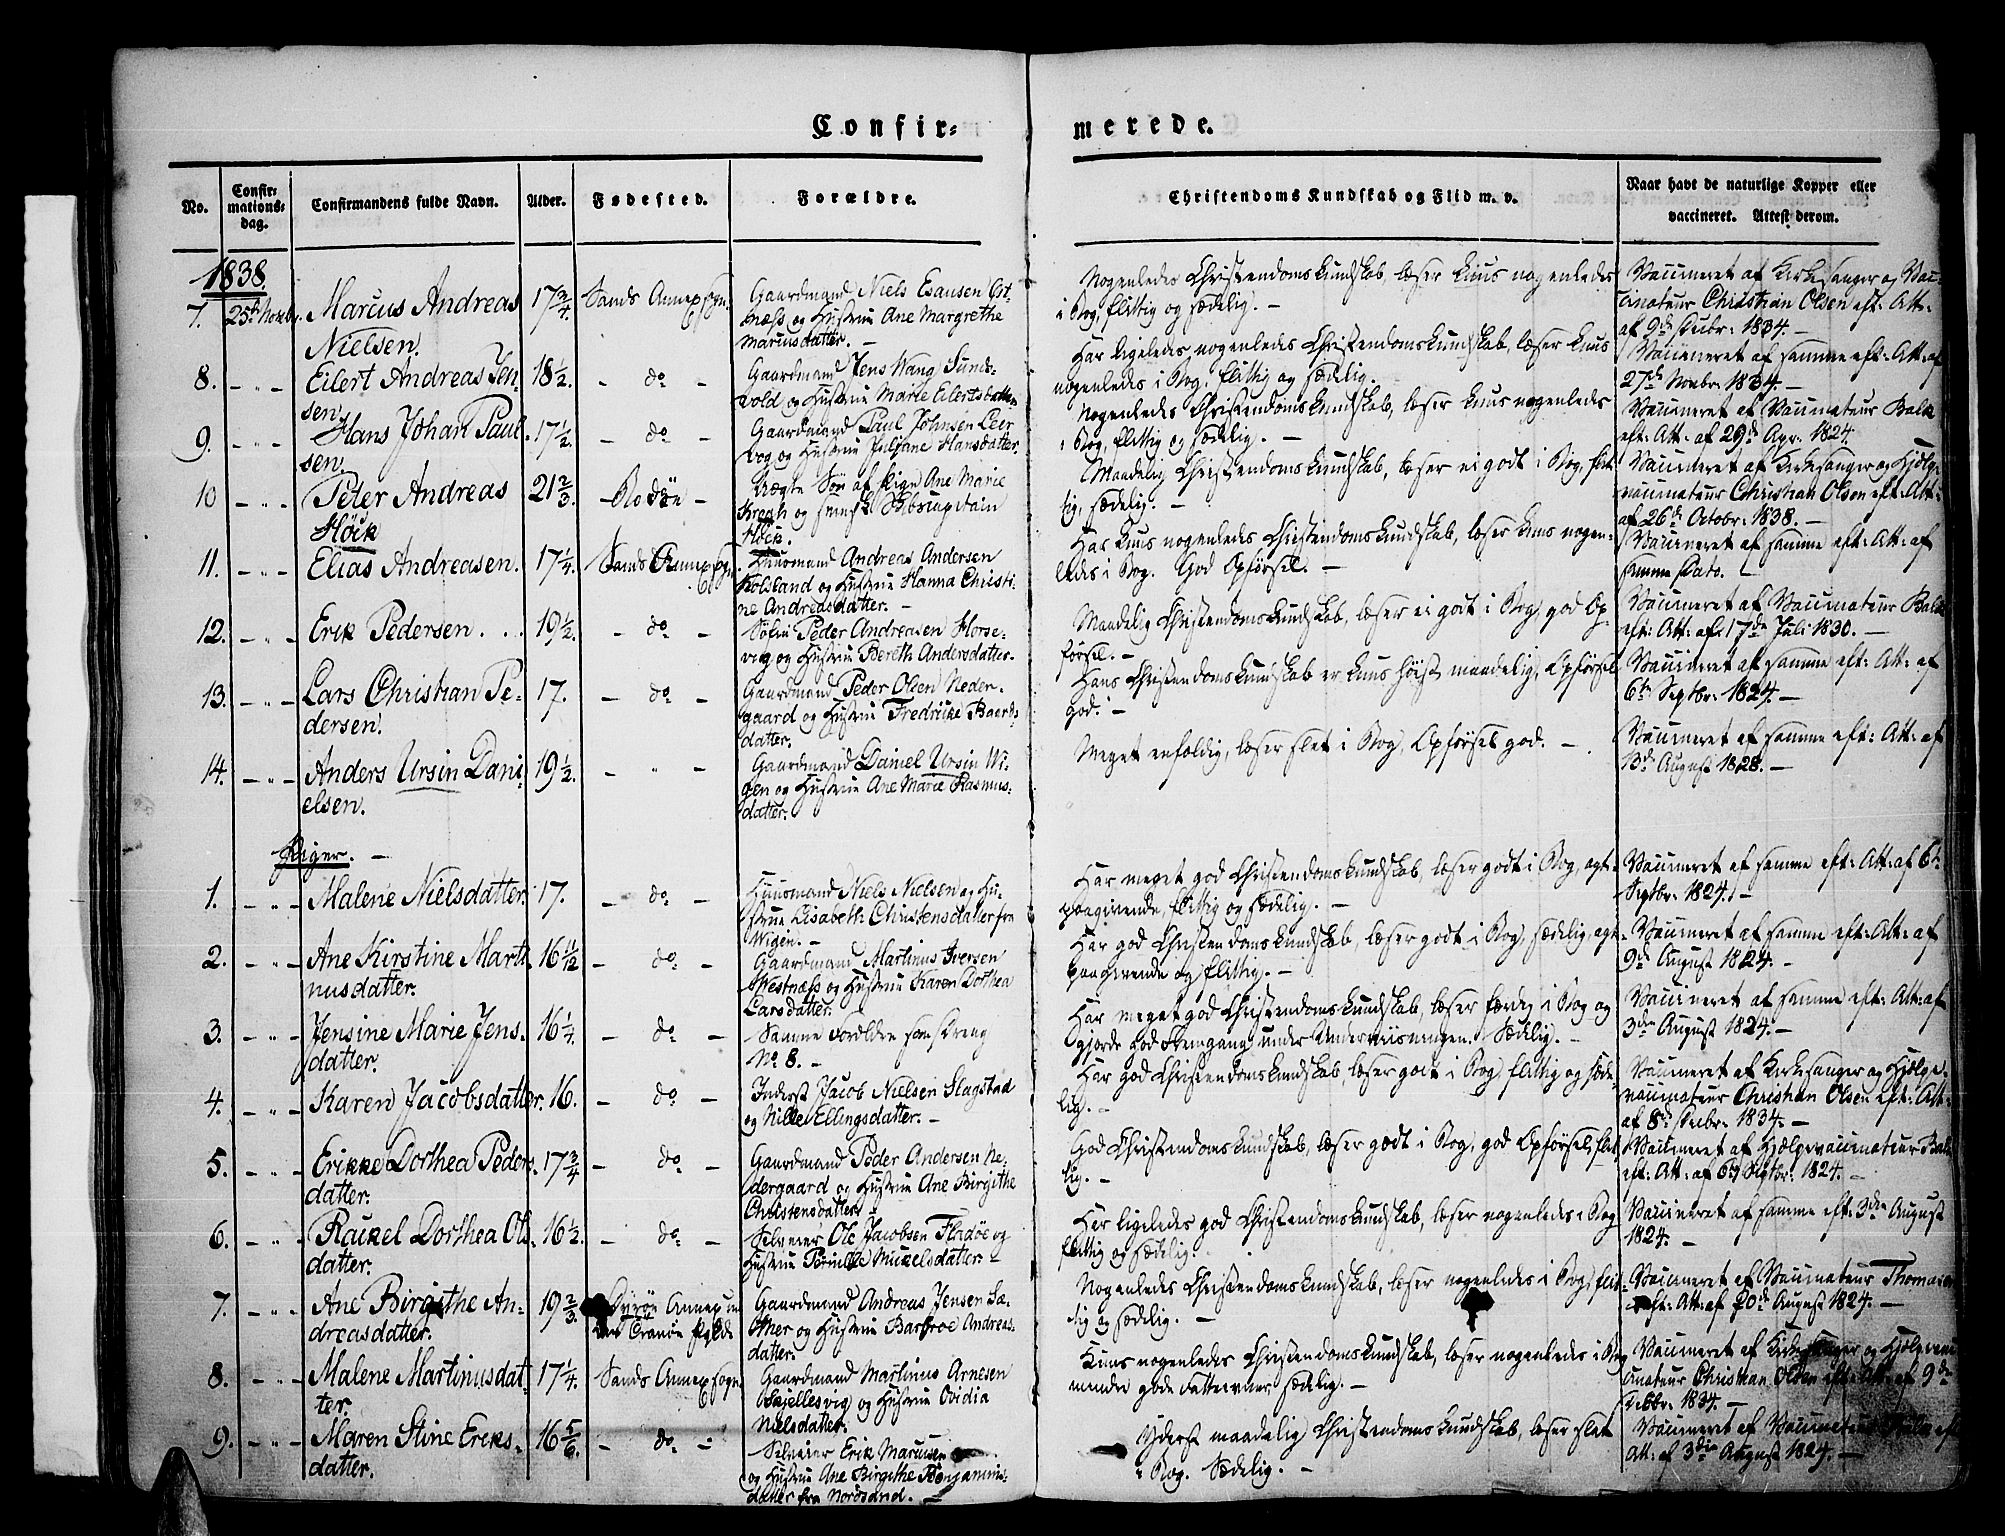 Confir-
merede.
No.
Confir-
mations-
dag.
Confirmandens fulde Navn.
Alder.
Fødested.
Forældre.
Christendoms Kundskab og Flid m. v.
Naar havt de naturlige Kopper eller
vaccineret. Attest derom.
1838.
7. 25de Novbr. Marcus Andreas 17 3/4. Sands Annexsogn
Nielsen.
Gaardmand Niels Esausen Øst-
næss og Hustrue Ane Margrethe
Marcusdatter. —
Nogenledes Christendomskundskab, læser kuns nogenledes
i Bog, flittig og sædelig. —
Vaccineret af Kirkesanger og Vac-
cinateur Christian Olsen eft: Att:
af 9de Decbr: 1834. —
8. — " — Eilert Andreas Jen- 18 1/2. — do —
sen.
Gaardmand Jens Wang Sunds-
vold og Hustrue Marie Eilertsdatter
Har ligeledes nogenledes Christendomskundskab, læser kuns
nogenledes i Bog, flittig og sædelig. —
Vaccineret af samme eft: Att: af
27de Novbr: 1834. —
9. — " — Hans Johan Paul- 17 1/2. — do —
sen.
Gaardmand Paul Johnsen Leer-
vog og Hustrue Juliane Hansdatter.
Nogenledes Christendomskundskab, læser kuns nogenledes
i Bog, flittig og sædelig. —
Vaccineret af Vaccinateur Balk
eft: Att: af 29de Apr: 1824.
10 — " — Peder Andreas 21 2/3. Rodöe —
Höck
Uægte Søn af Pige Ane Marie
Krogh og fransk Skibscapitain
Höck.
Maadelig Christendomskundskab, læser ei godt i Bog, flit-
tig, sædelig. —
Vaccineret af Kirkesanger og Hjelpe-
vaccinateur Christian Olsen eft: Att:
af 26de Octobr: 1838. —
11. — " — Elias Andreasen. 17 1/4. Sands Annexsogn.
Huusmand Andreas Andersen
Kolsland og Hustrue Hanna Christi-
ne Andreasdatter. —
Har kuns nogenledes Christendomskundskab, læser kuns nogen-
ledes i Bog. God Opførsel. —
Vaccineret af samme eft: Att: af
samme Dato. —
12. — " — Erik Pedersen. 19 1/2. — do —
Peder Andreasen Horse-
vig og Hustrue Bereth Andersdatter.
Maadelig Christendomskundskab, læser ei godt i Bog, god Op-
førsel. —
Vaccineret af Vaccinateur Balk
eft: Att: af 17de Juli 1830. —
13. — " — Lars Christian Pe- 17. — do —
dersen.
Gaardmand Peder Olsen Neder-
gaard og Hustrue Fredrikke Baards-
datter.
Hans Christendomskundskab er kuns høist maadelig, Opførsel
god. —
Vaccineret af samme eft: Att: af
6te Septbr: 1824. —
14. — " — Anders Ursin Dani- 19 1/2. — " —
elsen.
Gaardmand Daniel Ursin Wi-
gen og Hustrue Ane Marie Rasmus-
datter.
Meget enfoldig, læser slet i Bog, Opførsel god. —
Vaccineret af samme eft: Att: af
13de August 1828. —
Piger. —
1. — " — Malene Nielsdatter. 17. — do —
Huusmand Niels Nielsen og Hu-
strue Elisabeth Christensdatter fra
Wigen. —
Har meget god Christendomskundskab, læser godt i Bog, agt-
paagivende, flittig og sædelig. —
Vaccineret af samme eft: Att: af 6te
Septbr: 1824. —
2. — " — Ane Kirstine Marti- 16 11/12 — do —
nusdatter.
Gaardmand Martinus Iversen
Westnæss og Hustrue Karen Dorthea
Larsdatter.
Har god Christendomskundskab, læser godt i Bog, sædelig, agt-
paagivende og flittig. —
Vaccineret af samme eft: Att: af
9de August 1824. —
3. — " — Jensine Marie Jens- 16 1/4. — do —
datter.
Samme Forældre som Dreng
No 8. —
Har meget god Christendomskundskab, læser færdig i Bog og
gjorde god Fremgang under Underviisningen. Sædelig. —
Vaccineret af samme eft: Att: af
3die August 1824. —
4. — " — Karen Jacobsdatter. 16. — do —
Inderst Jacob Nielsen Slagstad
og Nille Ellingsdatter. —
Har god Christendomskundskab, læser godt i Bog, flittig og sæde-
lig. —
Vaccineret af Kirkesanger og Hjelpe-
vaccinateur Christian Olsen eft: Att:
af 8de Decbr: 1834. —
5. — " — Erikke Dorthea Peders- 17 3/4 — do —
datter.
Gaardmand Peder Andersen Ne-
dergaard og Hustrue Ane Birgithe
Christensdatter. —
God Christendomskundskab, læser godt i Bog, god Opførsel, flit-
tig. —
Vaccineret af Hjelpevaccinateur Balk
eft: Att: af 6te Septbr: 1824. —
6. — " — Rackel Dorthea Ols- 16 1/2. — do —
datter.
Selveier Ole Jacobsen Fladöe og
Hustrue Pernille Mickelsdatter. —
Har ligeledes god Christendomskundskab, læser nogenledes i Bog
flittig og sædelig.
Vaccineret af samme eft: 3die August
1824. —
7. — " — Ane Birgithe An- 19 2/3. Dyröe Annex un-
dreasdatter.
der Tranöe Pgjld.
Gaardmand Andreas Jensen Sæ-
ther og Hustrue Barbroe Andreas-
datter.
Nogenledes Christendomskundskab, læser nogenledes i Bog, flit-
tig og sædelig. —
Vaccineret af Vaccinateur Thomasen
eft: Att: af 20de August 1824. —
8. — " — Malene Martinusdat- 17 1/4. Sands Annexsogn
ter.
Gaardmand Martinus Arnesen
Skjellesvig og Hustrue Ovidia
Nielsdatter.
Kuns nogenledes Christendomskundskab, læser nogenledes i Bog
mindre gode Fatteevner, sædelig. —
Vaccineret af Kirkesanger og Hjelpevacci-
nateur Christian Olsen eft: Att: af 9de
Decbr: 1834. —
9. — " — Maren Stine Eriks- 16 5/6. — do —
datter.
Selveier Erik Marcusen
og Hustrue Ane Birgithe Benjamins-
datter fra Nordsand. —
Yderst maadelig Christendomskundskab, læser slet
i Bog. Sædelig. —
Vaccineret af Vaccinateur Balk eft:
Att: af 3die August 1824. —